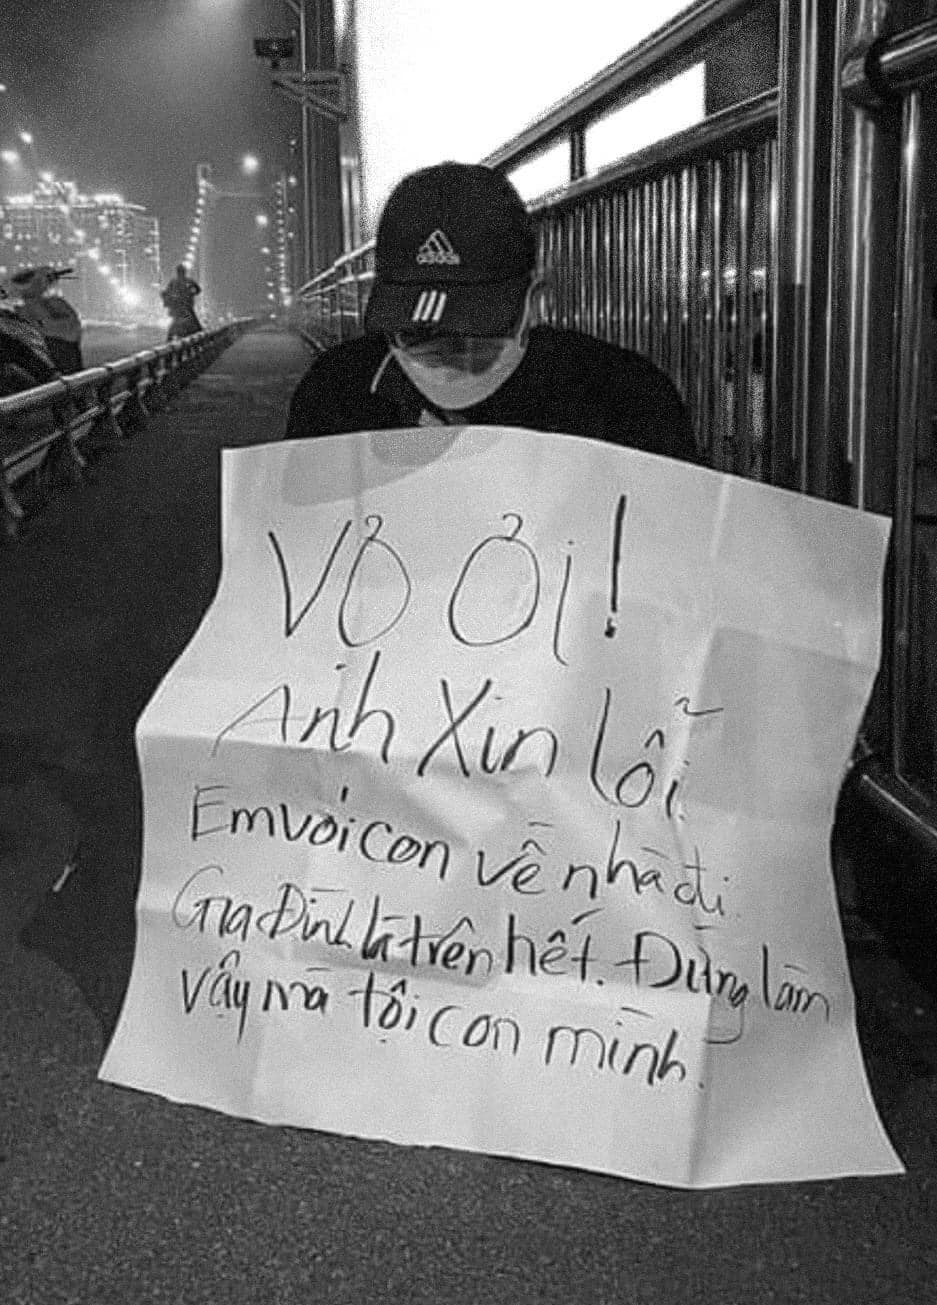 adidas
VỞ ỞI!
Anh Xin lỗi.
Em với con về nhà đi.
Gia Đình là trên hết. Đừng làm
vậy mà tội con mình.